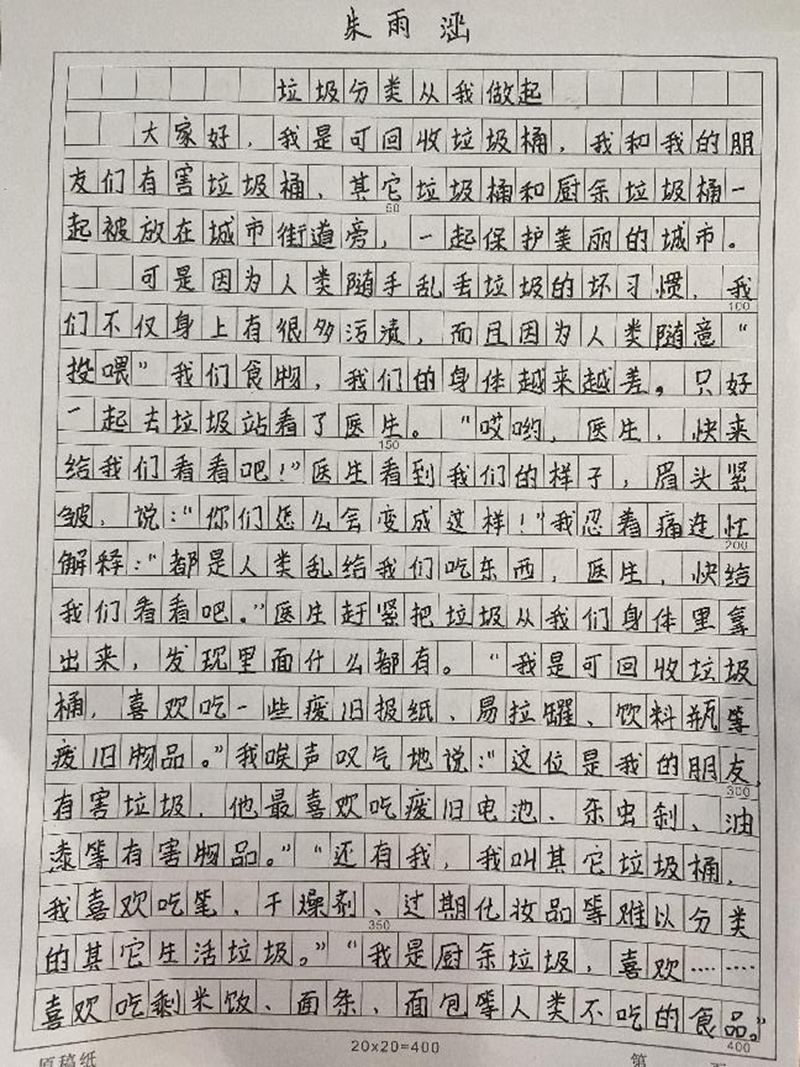 朱雨涵
垃圾分类从我做起
大家好，我是可回收垃圾桶，我和我的朋
友们有害垃圾桶、其它垃圾桶和厨余垃圾桶一
50
起被放在城市街道旁，一起保护美丽的城市。
可是因为人类随手乱丢垃圾的坏习惯，我
100
们不仅身上有很多污渍，而且因为人类随意“
投喂”我们食物，我们的身体越来越差。只好
一起去垃圾站看了医生。“哎哟，医生，快来
150
给我们看看吧！”医生看到我们的样子，眉头紧
皱，说：“你们怎么会变成这样！”我忍着痛连忙
200
解释：“都是人类乱给我们吃东西，医生，快给
我们看看吧。”医生赶紧把垃圾从我们身体里拿
出来，发现里面什么都有。“我是可回收垃圾
桶，喜欢吃一些废旧报纸、易拉罐、饮料瓶等
废旧物品。”我唉声叹气地说：“这位是我的朋友，
300
有害垃圾，他最喜欢吃废旧电池、杀虫剂、油
漆等有害物品。”“还有我，我叫其它垃圾桶，
我喜欢吃笔、干燥剂、过期化妆品等难以分类
350
的其它生活垃圾。”“我是厨余垃圾，喜欢……
喜欢吃剩米饭、面条、面包等人类不吃的食品。”
400
原稿纸 20×20=400 第 页